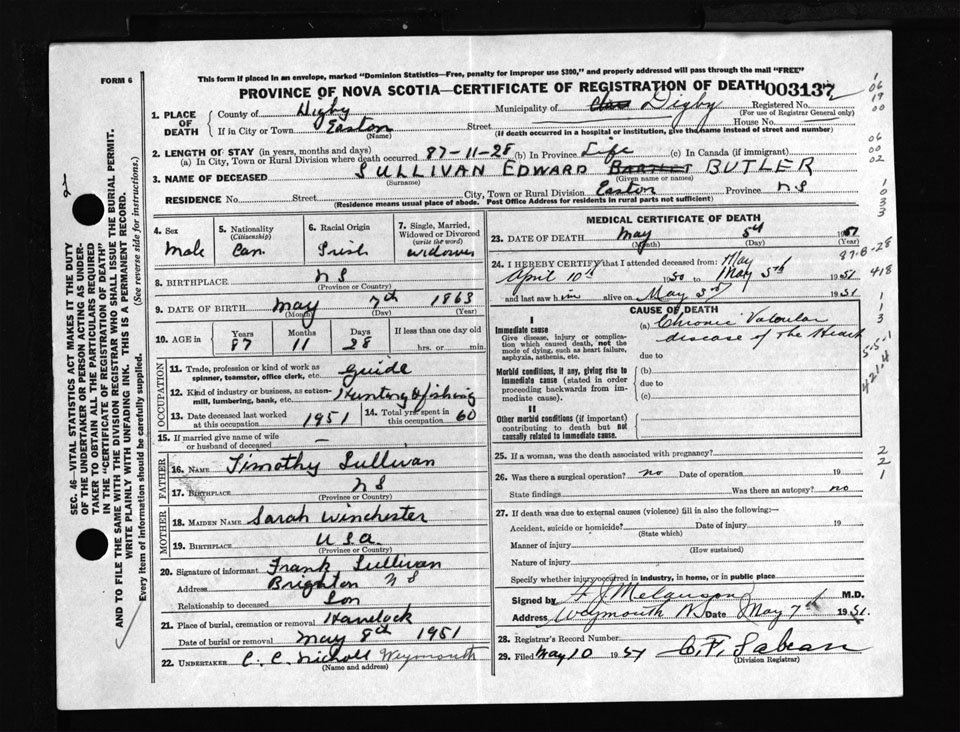 FORM 6
This form if placed in an envelope, marked "Dominion Statistics—Free, penalty for improper use $300," and properly addressed will pass through the mail "FREE"
PROVINCE OF NOVA SCOTIA—CERTIFICATE OF REGISTRATION OF DEATH 003137
1. PLACE OF DEATH County of Digby Municipality of Digby Registered No.
(For use of Registrar General only)
If in City or Town Easton Street House No.
(Name) (If death occurred in a hospital or institution, give the name instead of street and number)
2. LENGTH OF STAY (in years, months and days)
(a) In City, Town or Rural Division where death occurred 87-11-28 (b) In Province Life (c) In Canada (if immigrant)
3. NAME OF DECEASED SULLIVAN EDWARD BARTLET BUTLER
(Surname) (Given name or names)
RESIDENCE No. Street City, Town or Rural Division Easton Province NS
(Residence means usual place of abode. Post Office Address for residents in rural parts not sufficient)
4. Sex Male
5. Nationality (Citizenship) Can.
6. Racial Origin Irish
7. Single, Married, Widowed or Divorced (write the word) widower
8. BIRTHPLACE NS
(Province or Country)
9. DATE OF BIRTH May 7th 1863
(Month) (Day) (Year)
10. AGE in Years 87 Months 11 Days 28 If less than one day old hrs. or min.
OCCUPATION
11. Trade, profession or kind of work as spinner, teamster, office clerk, etc. Guide
12. Kind of industry or business, as cotton-mill, lumbering, bank, etc. Hunting & fishing
13. Date deceased last worked at this occupation 1951
14. Total yrs. spent in this occupation 60
15. If married give name of wife or husband of deceased —
FATHER
16. NAME Timothy Sullivan
17. BIRTHPLACE NS
(Province or Country)
MOTHER
18. MAIDEN NAME Sarah Winchester
19. BIRTHPLACE USA.
(Province or Country)
20. Signature of informant Frank Sullivan
Address Brighton NS
Relationship to deceased Son
21. Place of burial, cremation or removal Havelock
Date of burial or removal May 8th 1951
22. UNDERTAKER C. C. Nicholl Weymouth
(Name and address)
MEDICAL CERTIFICATE OF DEATH
23. DATE OF DEATH May 5th 1951
(Month) (Day) (Year)
24. I HEREBY CERTIFY that I attended deceased from: May
April 10th 1950 to May 5th 1951
and last saw him alive on May 3rd 1951
CAUSE OF DEATH
I
Immediate cause
Give disease, injury or complication which caused death, not the mode of dying, such as heart failure, asphyxia, asthenia, etc.
(a) Chronic Valvular disease of the Heart
due to
Morbid conditions, if any, giving rise to immediate cause (stated in order proceeding backwards from immediate cause)
(b)
due to
(c)
II
Other morbid conditions (if important) contributing to death but not causally related to immediate cause.
25. If a woman, was the death associated with pregnancy?
26. Was there a surgical operation? no Date of operation 19
State findings Was there an autopsy? no
27. If death was due to external causes (violence) fill in also the following:—
Accident, suicide or homicide? Date of injury 19
(State which)
Manner of injury
(How sustained)
Nature of injury
Specify whether injury occurred in industry, in home, or in public place
Signed by M.D.
Address Weymouth N Date May 7th 1951.
28. Registrar's Record Number
29. Filed May 10 1951 C. F. Sabean
(Division Registrar)
SEC. 46—VITAL STATISTICS ACT MAKES IT THE DUTY
OF THE UNDERTAKER OR PERSON ACTING AS UNDER-
TAKER TO OBTAIN ALL THE PARTICULARS REQUIRED
IN THE "CERTIFICATE OF REGISTRATION OF DEATH"
AND TO FILE THE SAME WITH THE DIVISION REGISTRAR WHO SHALL ISSUE THE BURIAL PERMIT.
WRITE PLAINLY WITH UNFADING INK. THIS IS A PERMANENT RECORD.
Every item of information should be carefully supplied. (See reverse side for instructions.)
1
06
19
00
06
00
02
1
0
3
3
87-8-28
418
1
1
3
5-5-1
421.4
2
2
1